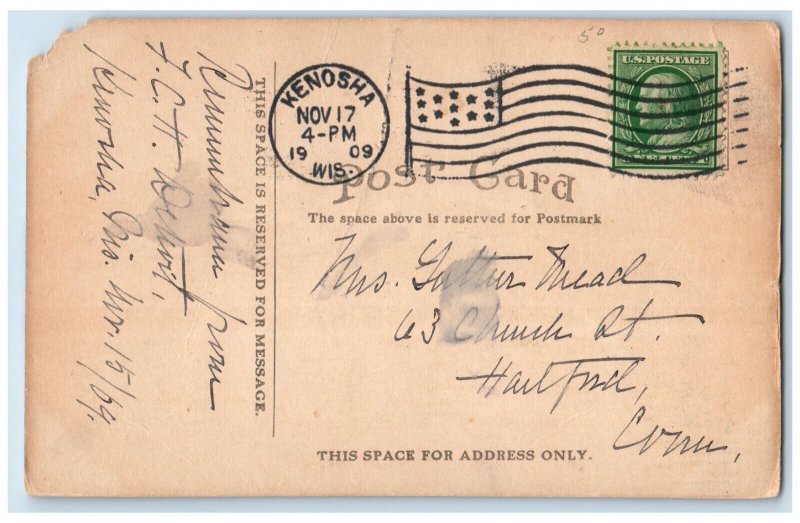 Remembrance from
F. C. H.
Kenosha, Wis. Nov. 15/09.
THIS SPACE IS RESERVED FOR MESSAGE.
KENOSHA
NOV 17
4-PM
1909
WIS.
50
U.S. POSTAGE
Post Card
The space above is reserved for Postmark
Mrs. Mead
63 Church St.
Hartford,
Conn,
THIS SPACE FOR ADDRESS ONLY.